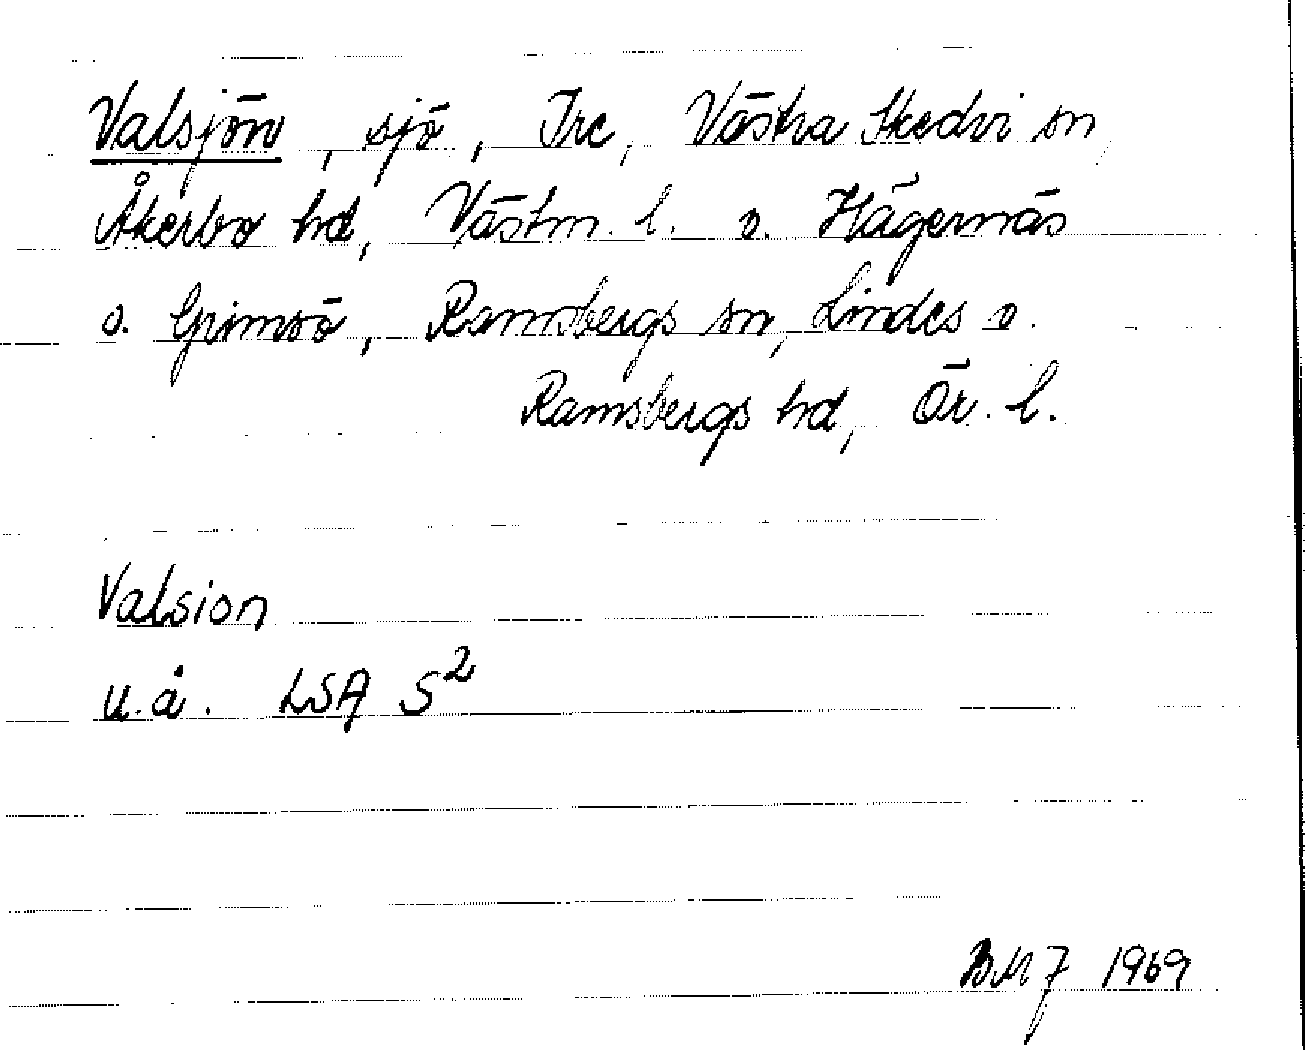 Valsjön, sjö, Tre, Västra Skedvi sn,
Åkerbo hd, Västm. l. o. Hägernäs
o. Grimsö, Ramsbergs sn, Lindes o.
Ramsbergs hd, Ör. l.
Valsion
u.å. LSA S²
BMJ 1969